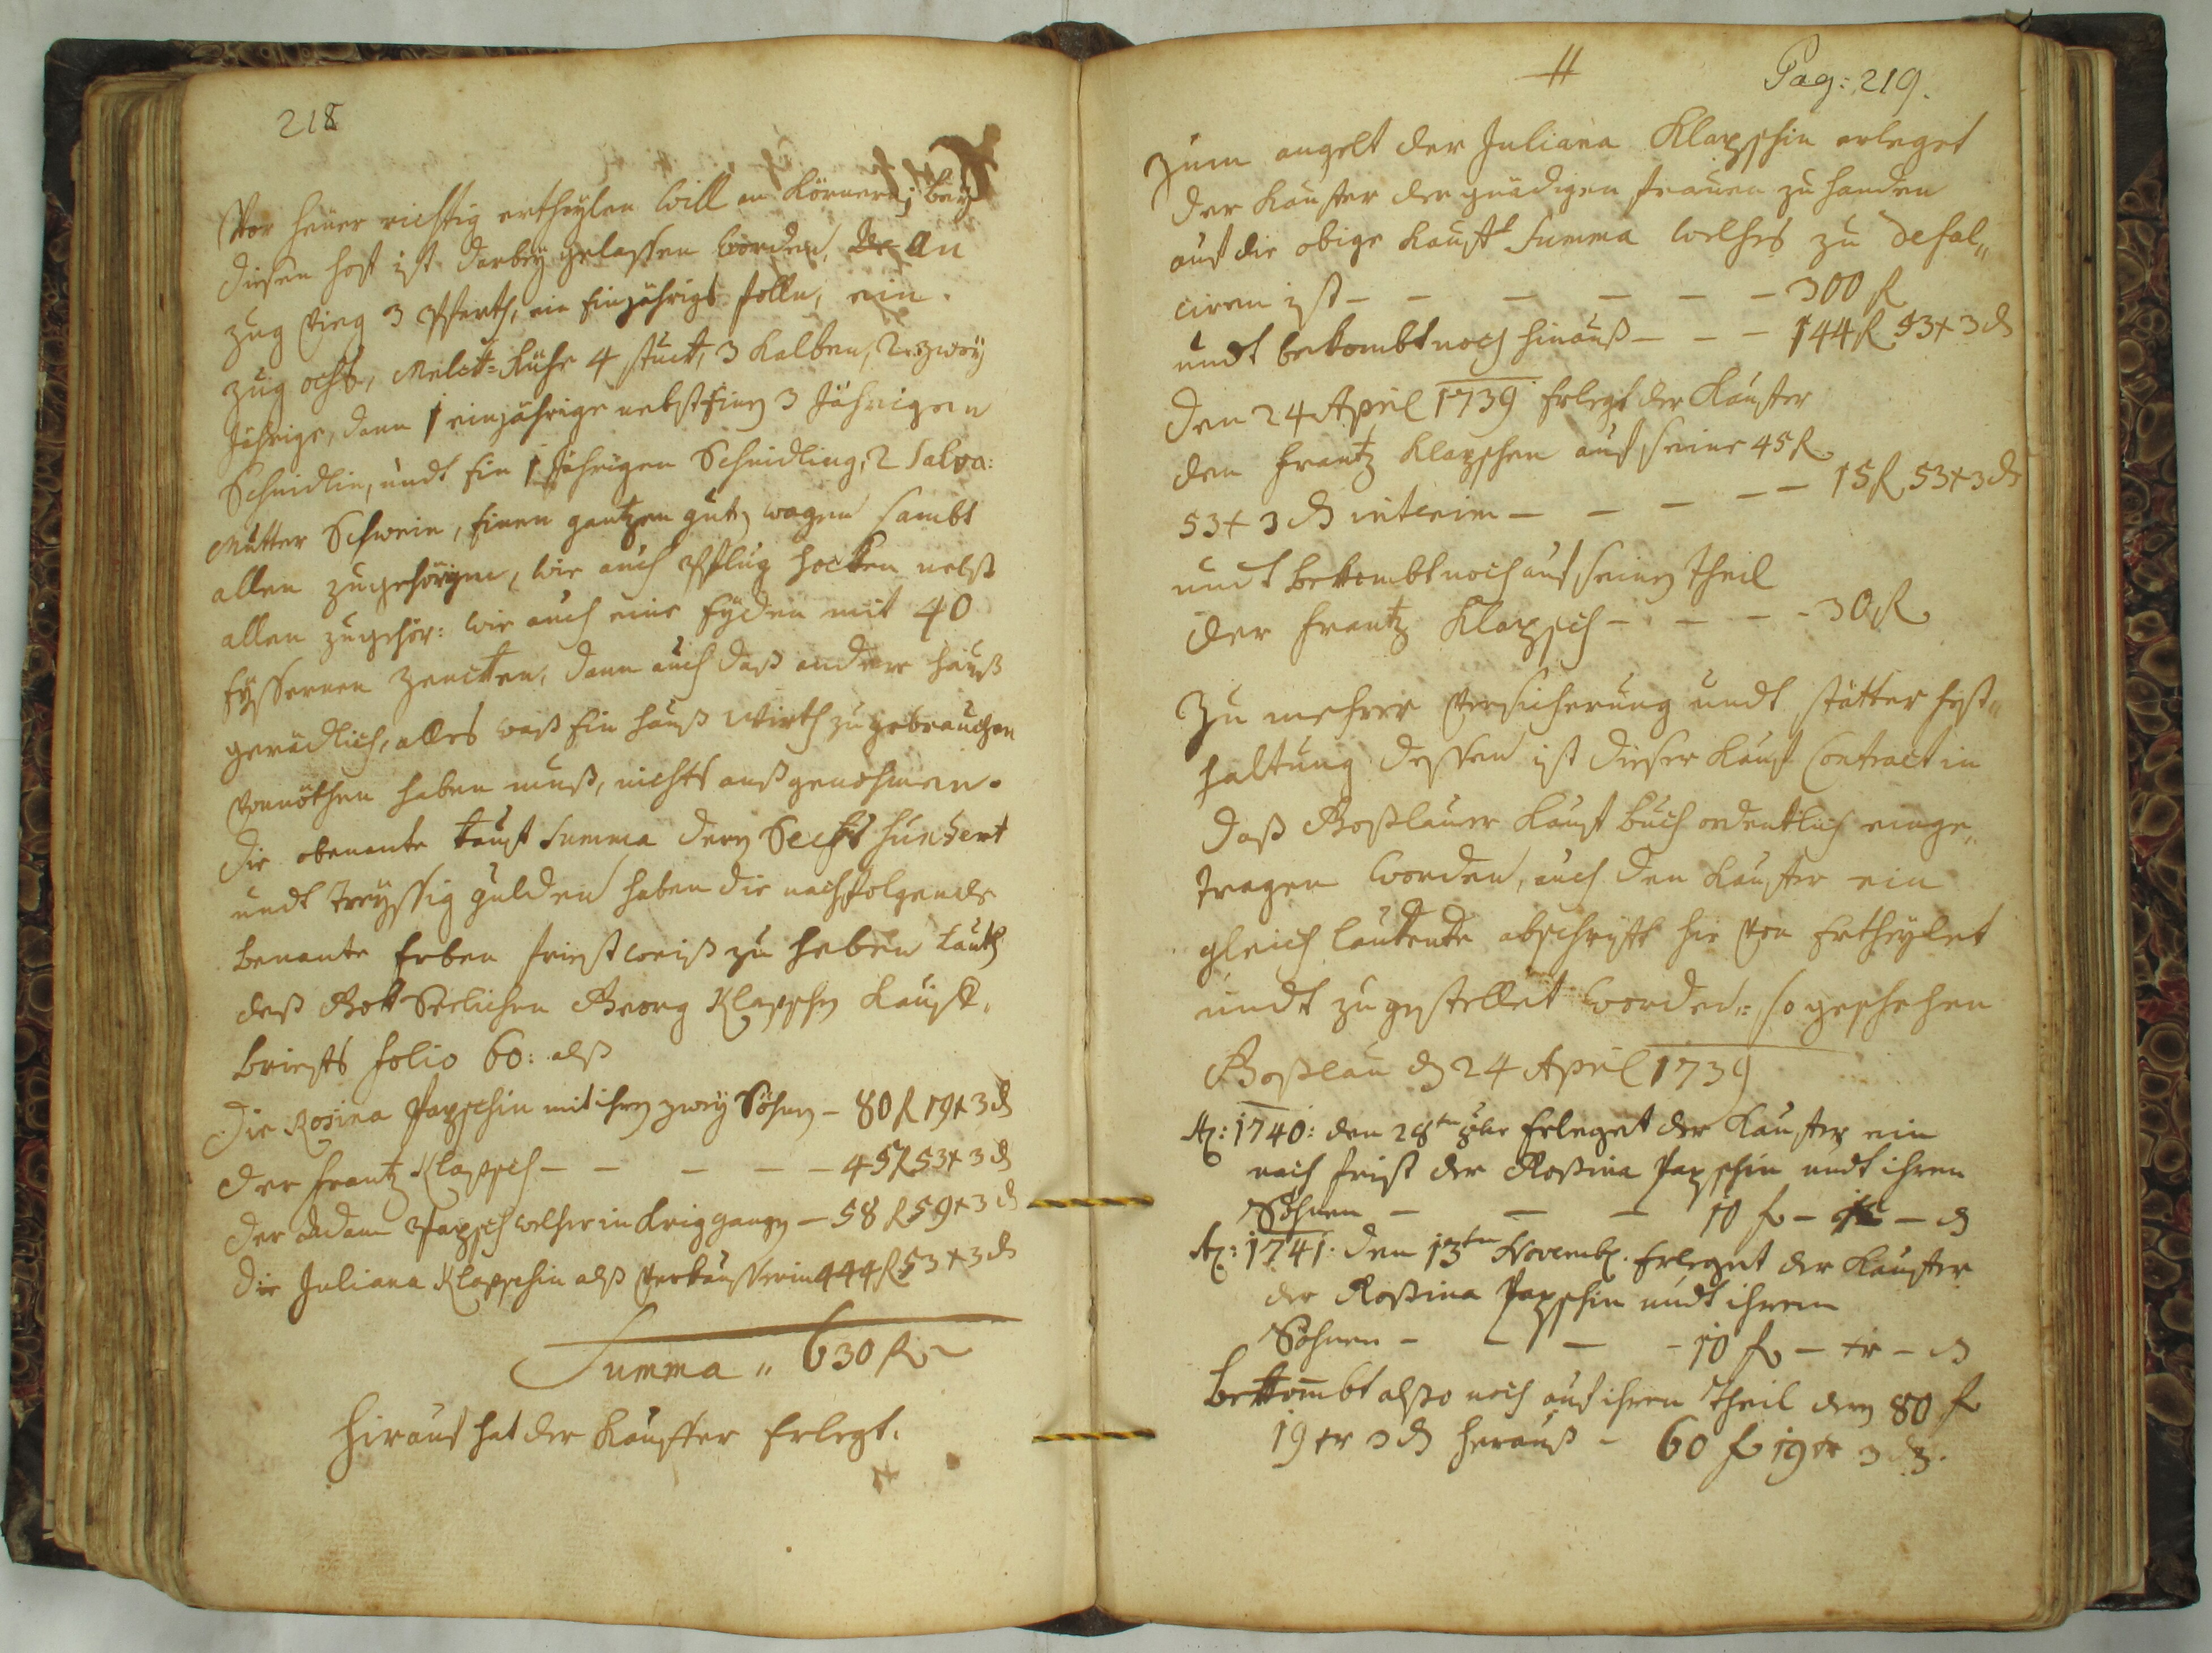 218
Vor heüer richtig ertheylen will an Körnern; bey
diesen hoff ist darbey gelassen worden, An
zug Vieg 3 Pferth, ein Einjährigs folln, ein
zug ochß, Melck-Kühe 4 stuckt, 3 Kalben, 2 zwey
Jährige, dann 1 einjährige nebst Einen 3 Jährigen
Schnidling, undt Ein 1 Jährigen Schnidling, 2 Salva:
Mutter Schwein, Einen gantzen gutn wagen sambt
allen zugehörigen, wie auch Pflug hocken nebst
allen zugehör: wie auch eine Eyden mit 40
Eyssernen Zenckten, dann auch daß andere hauß
gerädlich, alles waß Ein hauß Wirth zu gebrauchen
Vonnöthen haben muß, nichts außgenohmen.
Die obenante kauff Summa deren Sechß hundert
undt dreyssig gulden haben die nachfolgende
benante Erben fristweiß zu heben lauth
deß Gott Seelichen Georg Klapschen Kauff
brieffs folio 60: alß
Die Rosina Papschin mit ihren zwey Söhnen – 80 f 19 x 3 d
Der Frantz Klapsch – – – – – 45 f 53 x 3 d
Der Adam Papsch welcher in Krig gangen – 58 f 59 x 3 d
Die Juliana Klapschin alß Verkaufferin 444 f 53 x 3 d
Summa „ 630 f
Hierauf hat der Kauffer Erlegt.
Pag: 219.
Zum angelt der Juliana Klapschin erleget
der Kauffer der gnädigen frauen zu handen
auf die obige Kauff Summa welches zu defal„
ciren ist – – – – – – 300 f
undt bekombt noch hinauß – – – 144 f 53 x 3 d
Den 24 April 1739 Erlegt der Kauffer
dem Frantz Klapschen auf seine 45 f
53 x 3 d interim – – – – – 15 f 53 x 3 d
undt bekombt noch auf seinen theil
der Frantz Klapsch – – – – 30 f
Zu mehrer Versicherung undt stätter fest„
haltung dessen ist dieser Kauff Contract in
daß Goßlauer Kauff buch ordentlich einge„
tragen worden, auch den Kauffer ein
gleich lautente abschrifft hie Von Ertheylet
undt zugestellet worden: so geschehen
Goßlau d 24 April 1739
Ao: 1740: den 28ten 8ber Erleget der Kauffer ein
nach frist der Rossina Papschin undt ihren
Söhnen – – – 10 f – xr – d
Ao: 1741: den 13ten Novemb. Erleget der Kauffer
der Rossina Papschin undt ihrem
Söhnen – – – – 10 f – xr – d
Bekombt also noch auf ihren theil deren 80 f
19 xr 3 d herauß – 60 f 19 xr 3 d.